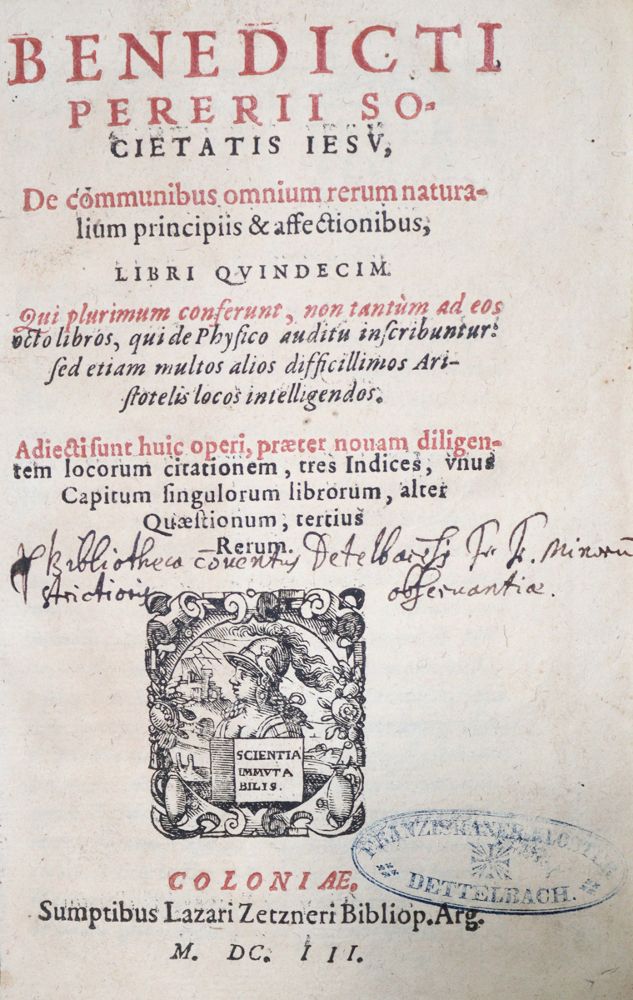 BENEDICTI
PERERII SO-
CIETATIS IESV,
De cōmmunibus omnium rerum natura-
lium principiis & affectionibus,
LIBRI QVINDECIM.
Qui plurimum conferunt, non tantùm ad eos
octo libros, qui de Physico auditu inscribuntur:
sed etiam multos alios difficillimos Ari-
stotelis locos intelligendos.
Adiecti sunt huic operi, præter nouam diligen-
tem locorum citationem, tres Indices, vnus
Capitum singulorum librorum, alter
Quæstionum, tertius
Rerum.
Bibliotheca cōventus Detelbacēsis Fr. F. Minorū
strictioris observantiæ.
SCIENTIA
IMMVTA
BILIS.
FRANZISKANERKLOSTER
DETTELBACH.
COLONIÆ,
Sumptibus Lazari Zetzneri Bibliop. Arg.
M. DC. III.